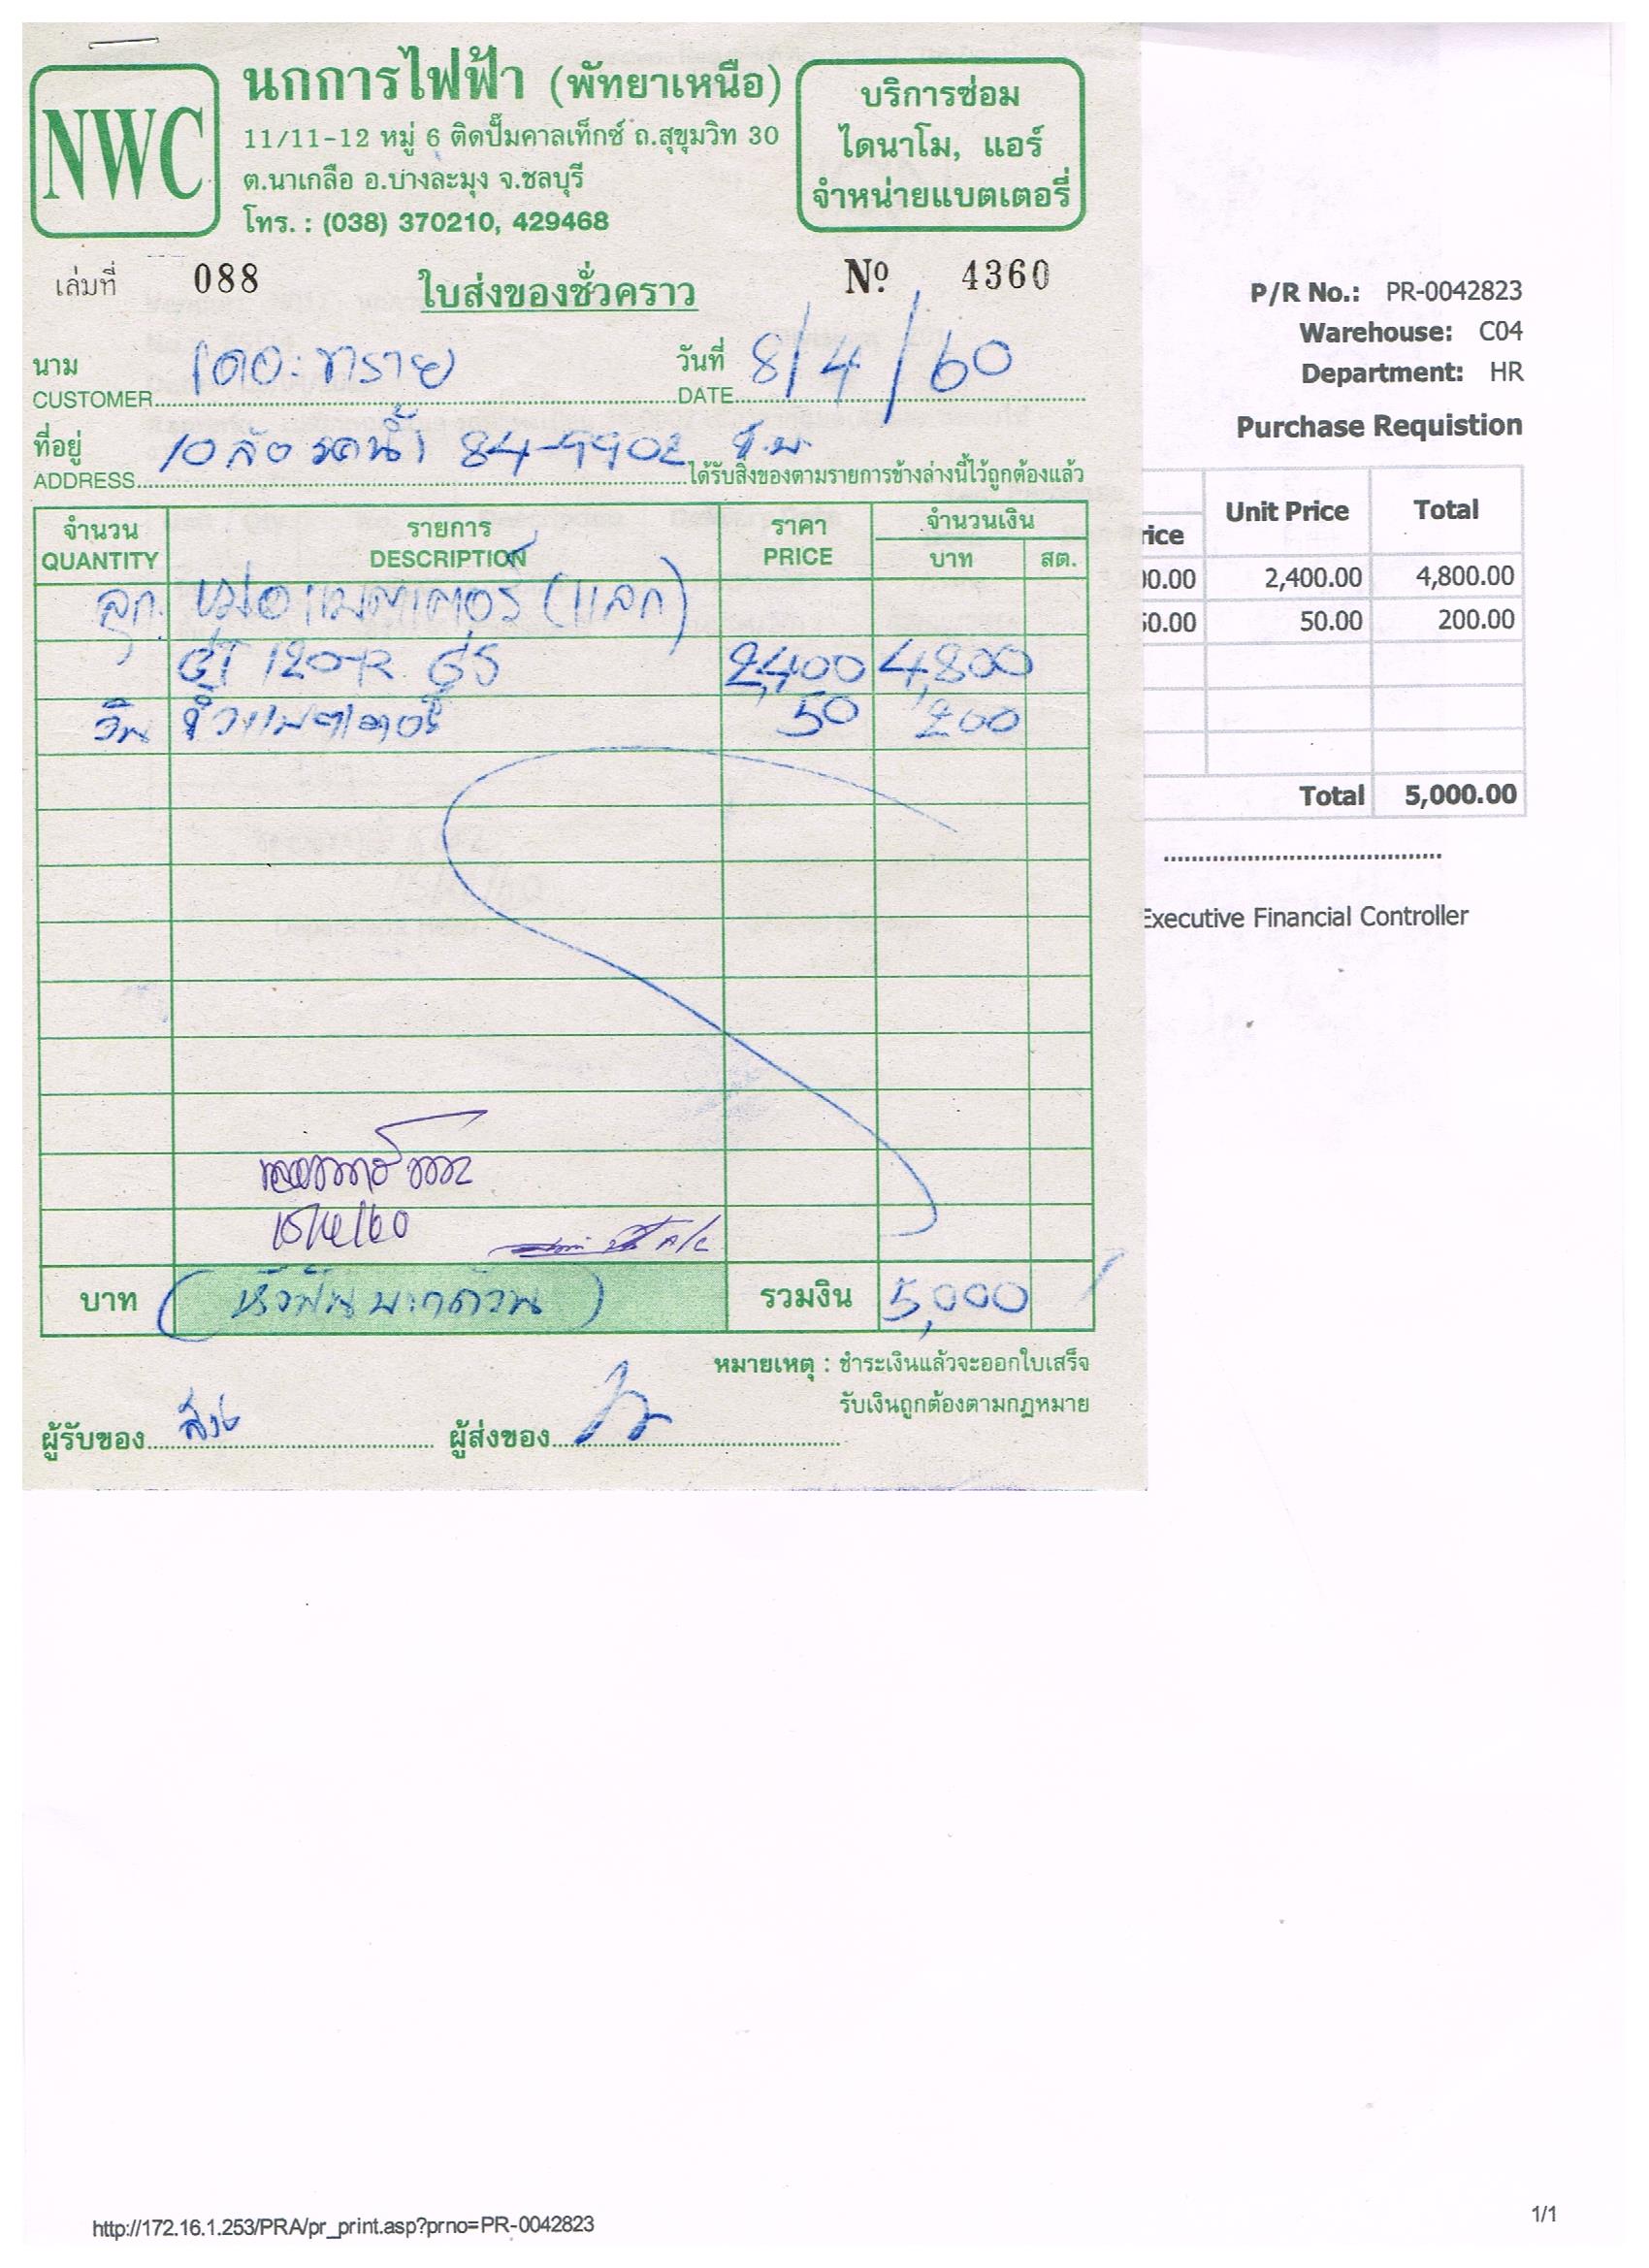 NWC
นกการไฟฟ้า (พัทยาเหนือ)
11/11-12 หมู่ 6 ติดปั๊มคาลเท็กซ์ ถ.สุขุมวิท 30
ต.นาเกลือ อ.บางละมุง จ.ชลบุรี
โทร. : (038) 370210, 429468
บริการซ่อม
ไดนาโม, แอร์
จำหน่ายแบตเตอรี่
เล่มที่ 088
ใบส่งของชั่วคราว
Nº 4360
นาม เดอะทราย
CUSTOMER
วันที่ 8/4/60
DATE
ที่อยู่ 10 ล้อ รดน้ำ 84-9902 ช.บ.
ADDRESS
ได้รับสิ่งของตามรายการข้างล่างนี้ไว้ถูกต้องแล้ว
จำนวน รายการ ราคา จำนวนเงิน
QUANTITY DESCRIPTION PRICE บาท สต.
ลูก หม้อแบตเตอรี่ (แลก)
GT 120-R GS 2,400 4,800
อัน ขั้วแบตเตอรี่ 50 200
15/4/60
A/C
บาท (ห้าพันบาทถ้วน) รวมเงิน 5,000
หมายเหตุ : ชำระเงินแล้วจะออกใบเสร็จ
รับเงินถูกต้องตามกฎหมาย
ผู้รับของ ผู้ส่งของ
P/R No.: PR-0042823
Warehouse: C04
Department: HR
Purchase Requistion
rice Unit Price Total
00.00 2,400.00 4,800.00
50.00 50.00 200.00
Total 5,000.00
Executive Financial Controller
http://172.16.1.253/PRA/pr_print.asp?prno=PR-0042823
1/1